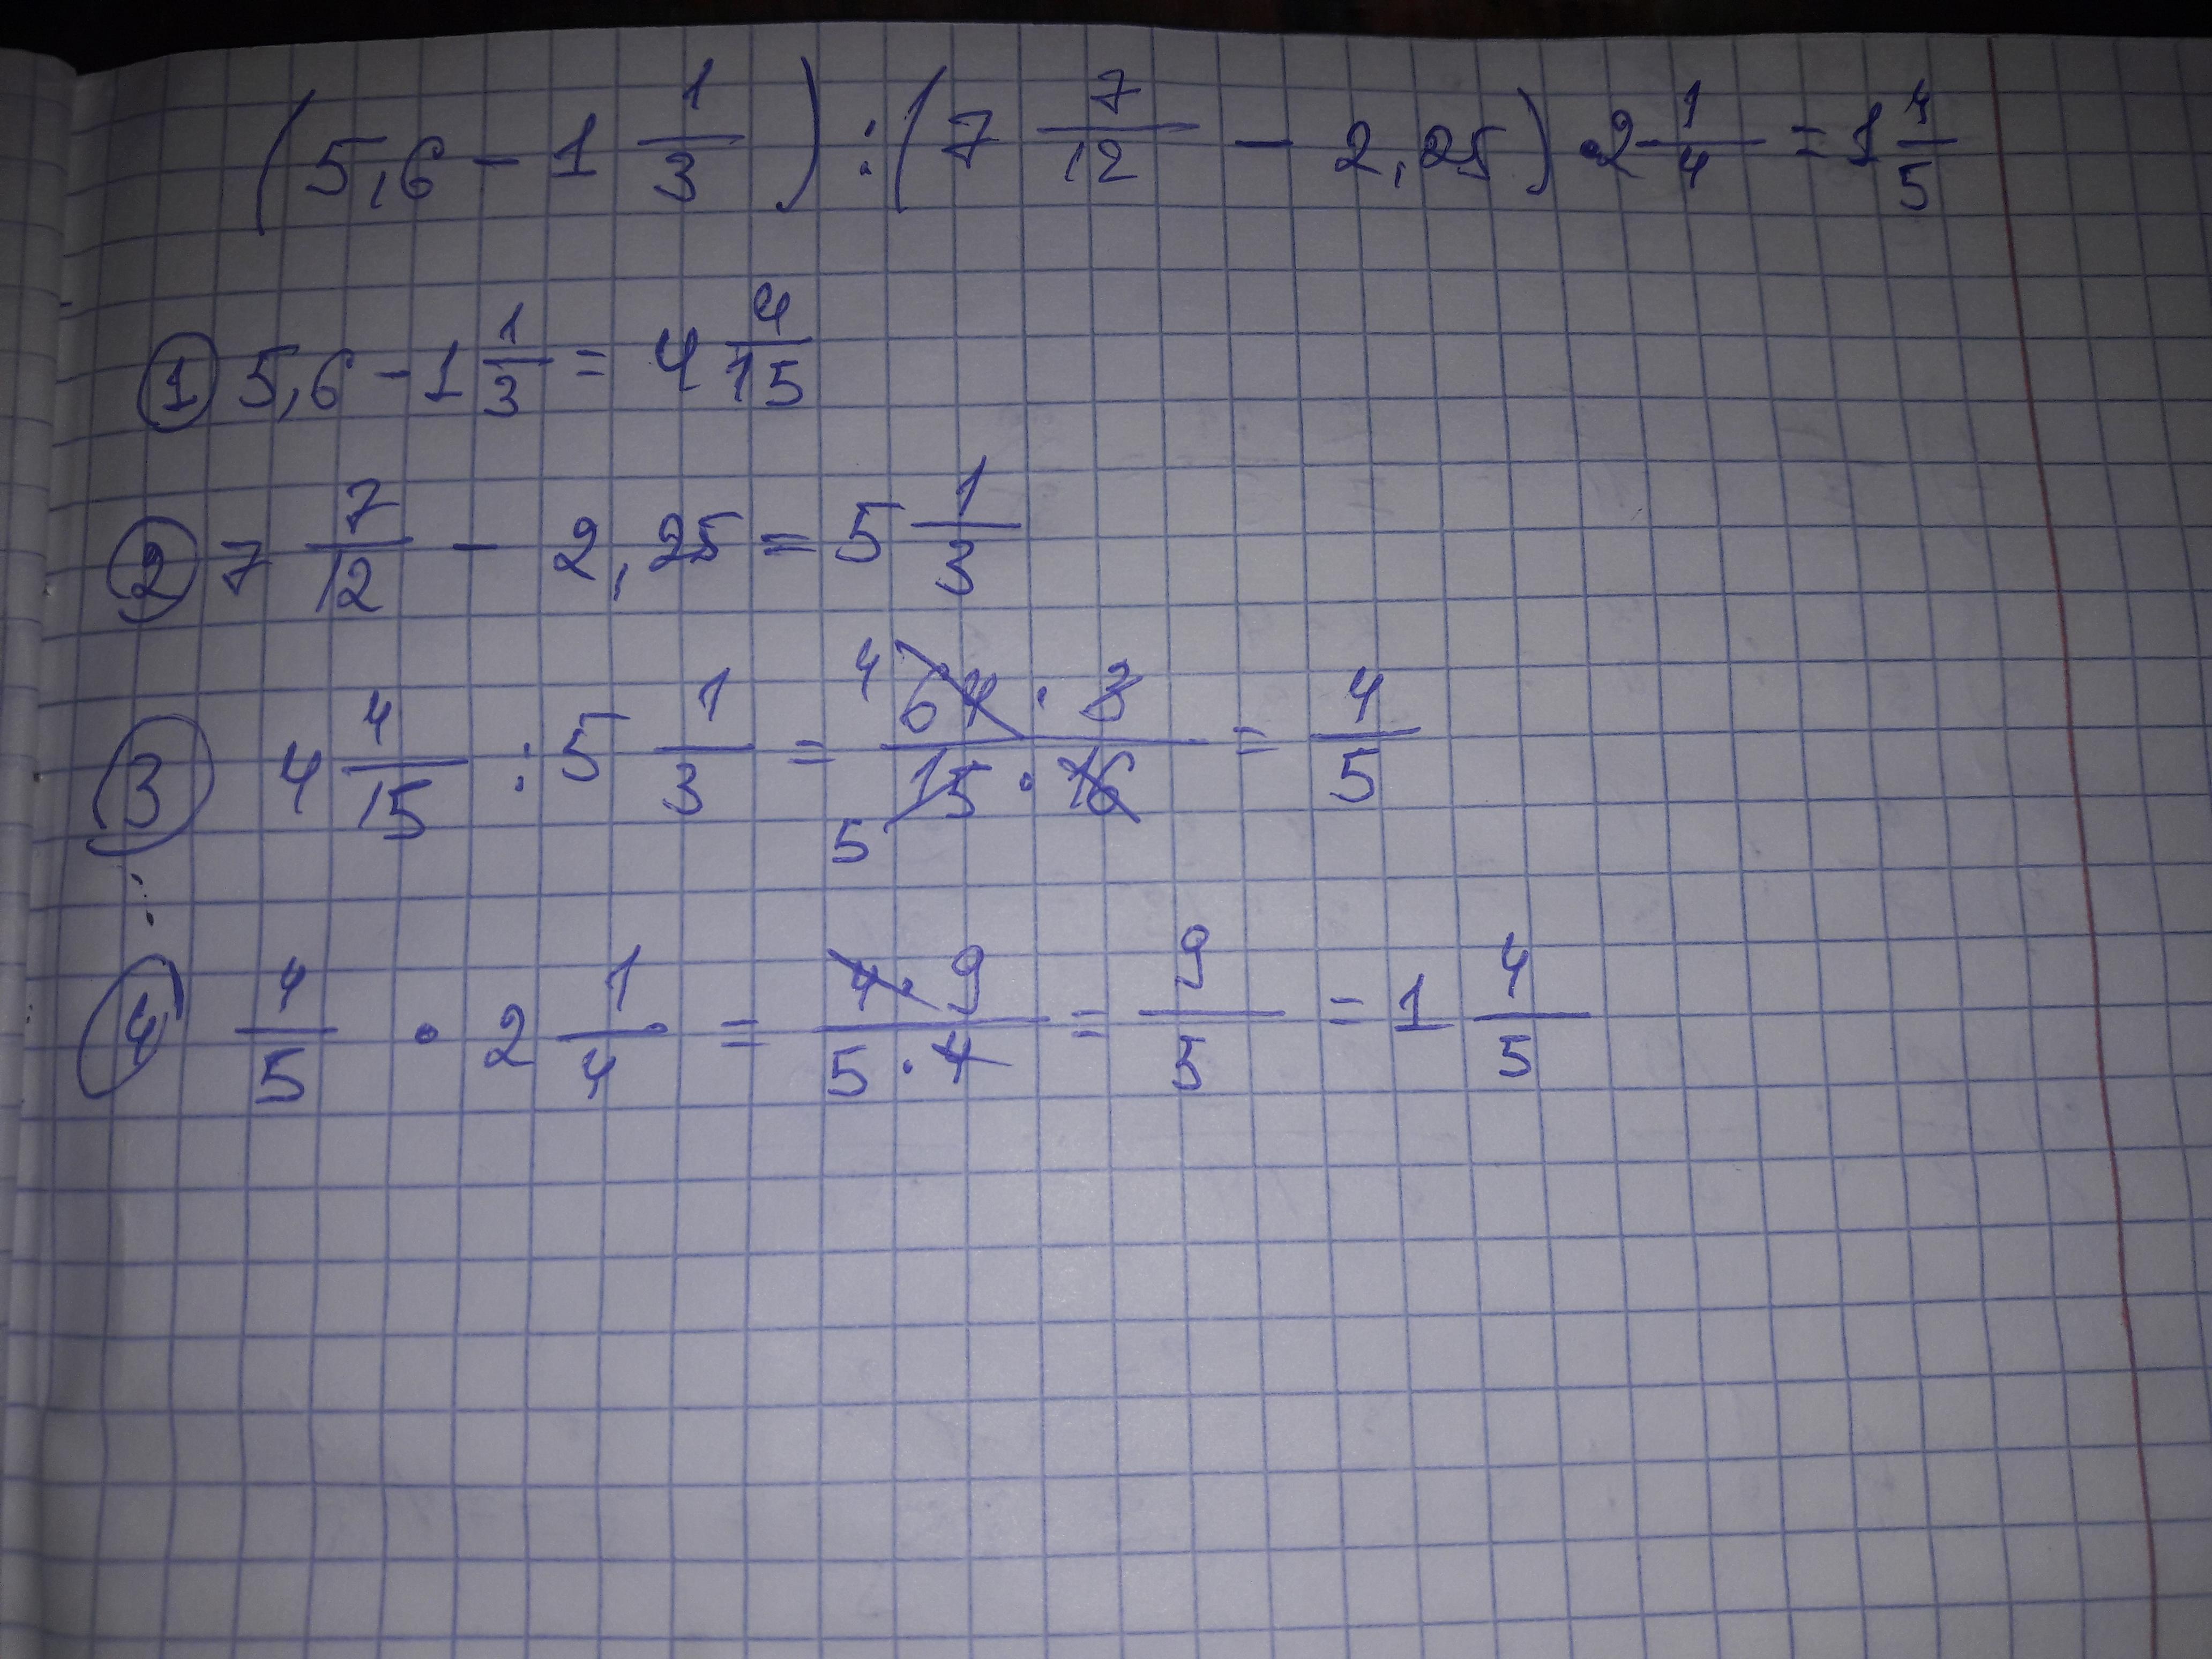 (5,6 - 1 1/3) : (7 7/12 - 2,25) · 2 1/4 = 1 4/5
① 5,6 - 1 1/3 = 4 4/15
② 7 7/12 - 2,25 = 5 1/3
③ 4 4/15 : 5 1/3 = 4 64 · 3 / 5 15 · 16 = 4/5
④ 4/5 · 2 1/4 = 4 · 9 / 5 · 4 = 9/5 = 1 4/5